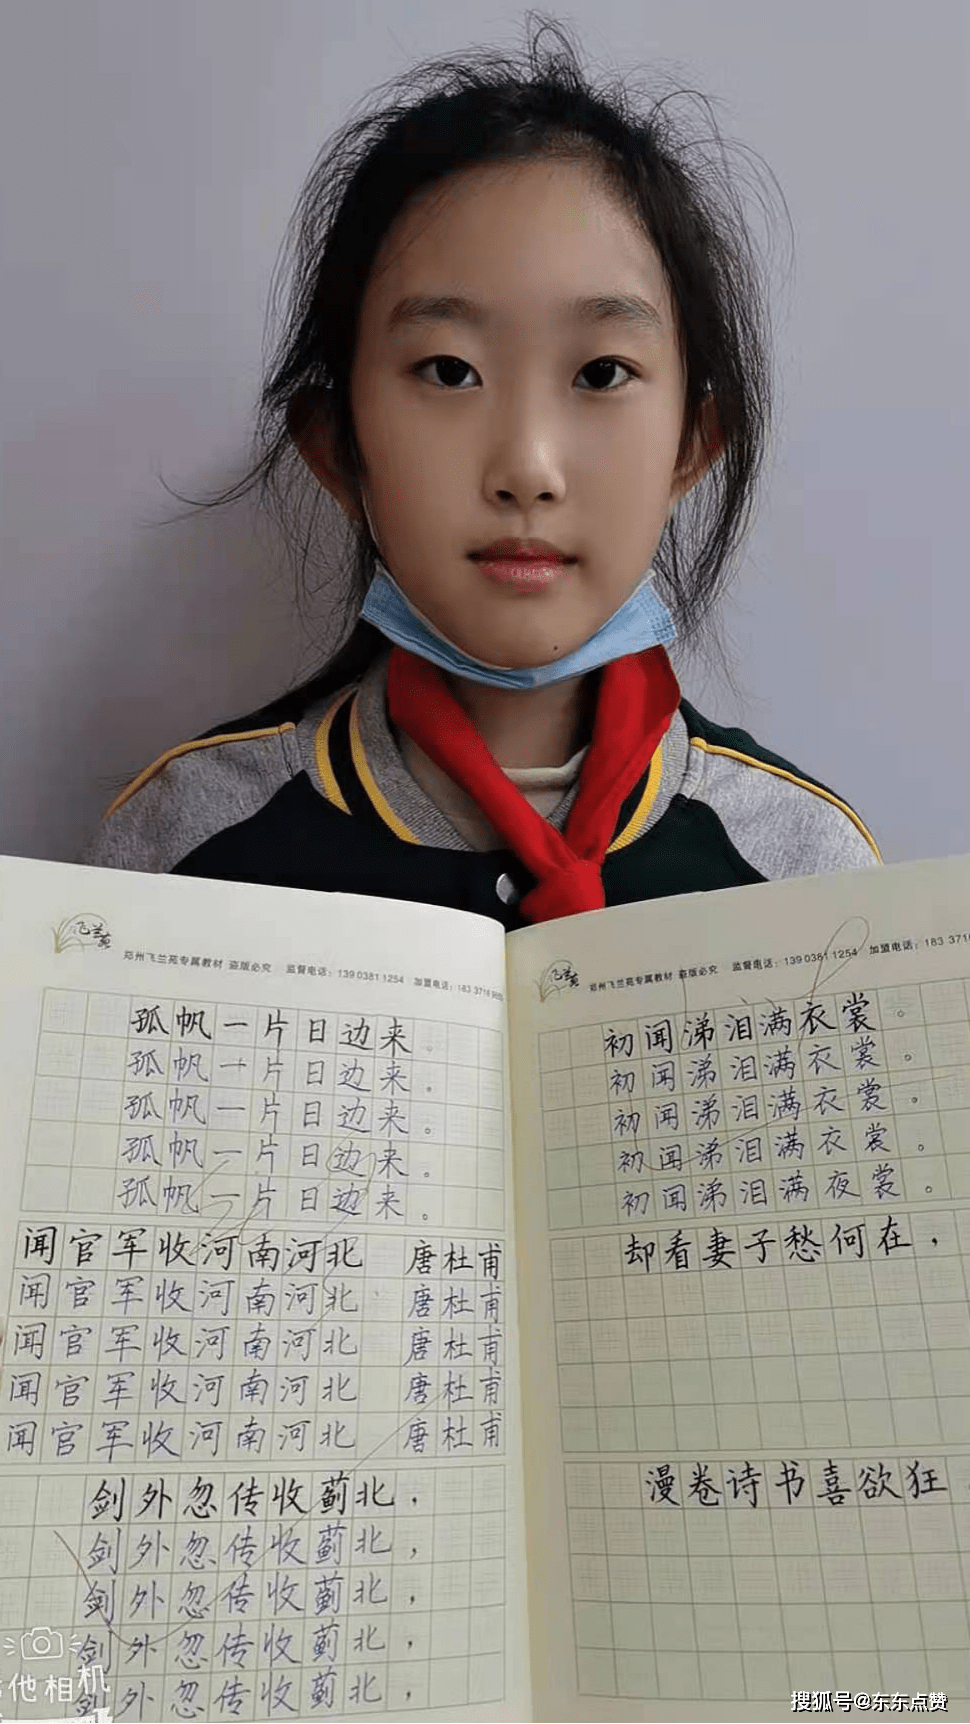 飞兰苑
郑州飞兰苑专属教材 盗版必究 监督电话：139 0381 1254 加盟电话：183 3716
孤帆一片日边来。
孤帆一片日边来。
孤帆一片日边来。
孤帆一片日边来。
孤帆一片日边来。
闻官军收河南河北 唐杜甫
闻官军收河南河北 唐杜甫
闻官军收河南河北 唐杜甫
闻官军收河南河北 唐杜甫
闻官军收河南河北 唐杜甫
剑外忽传收蓟北，
剑外忽传收蓟北，
剑外忽传收蓟北，
剑外忽传收蓟北，
剑外忽传收蓟北，
飞兰苑
郑州飞兰苑专属教材 盗版必究 监督电话：139 0381 1254 加盟电话：183 3716
初闻涕泪满衣裳。
初闻涕泪满衣裳。
初闻涕泪满衣裳。
初闻涕泪满衣裳。
初闻涕泪满夜裳。
却看妻子愁何在，
漫卷诗书喜欲狂
他相机
搜狐号@东东点赞